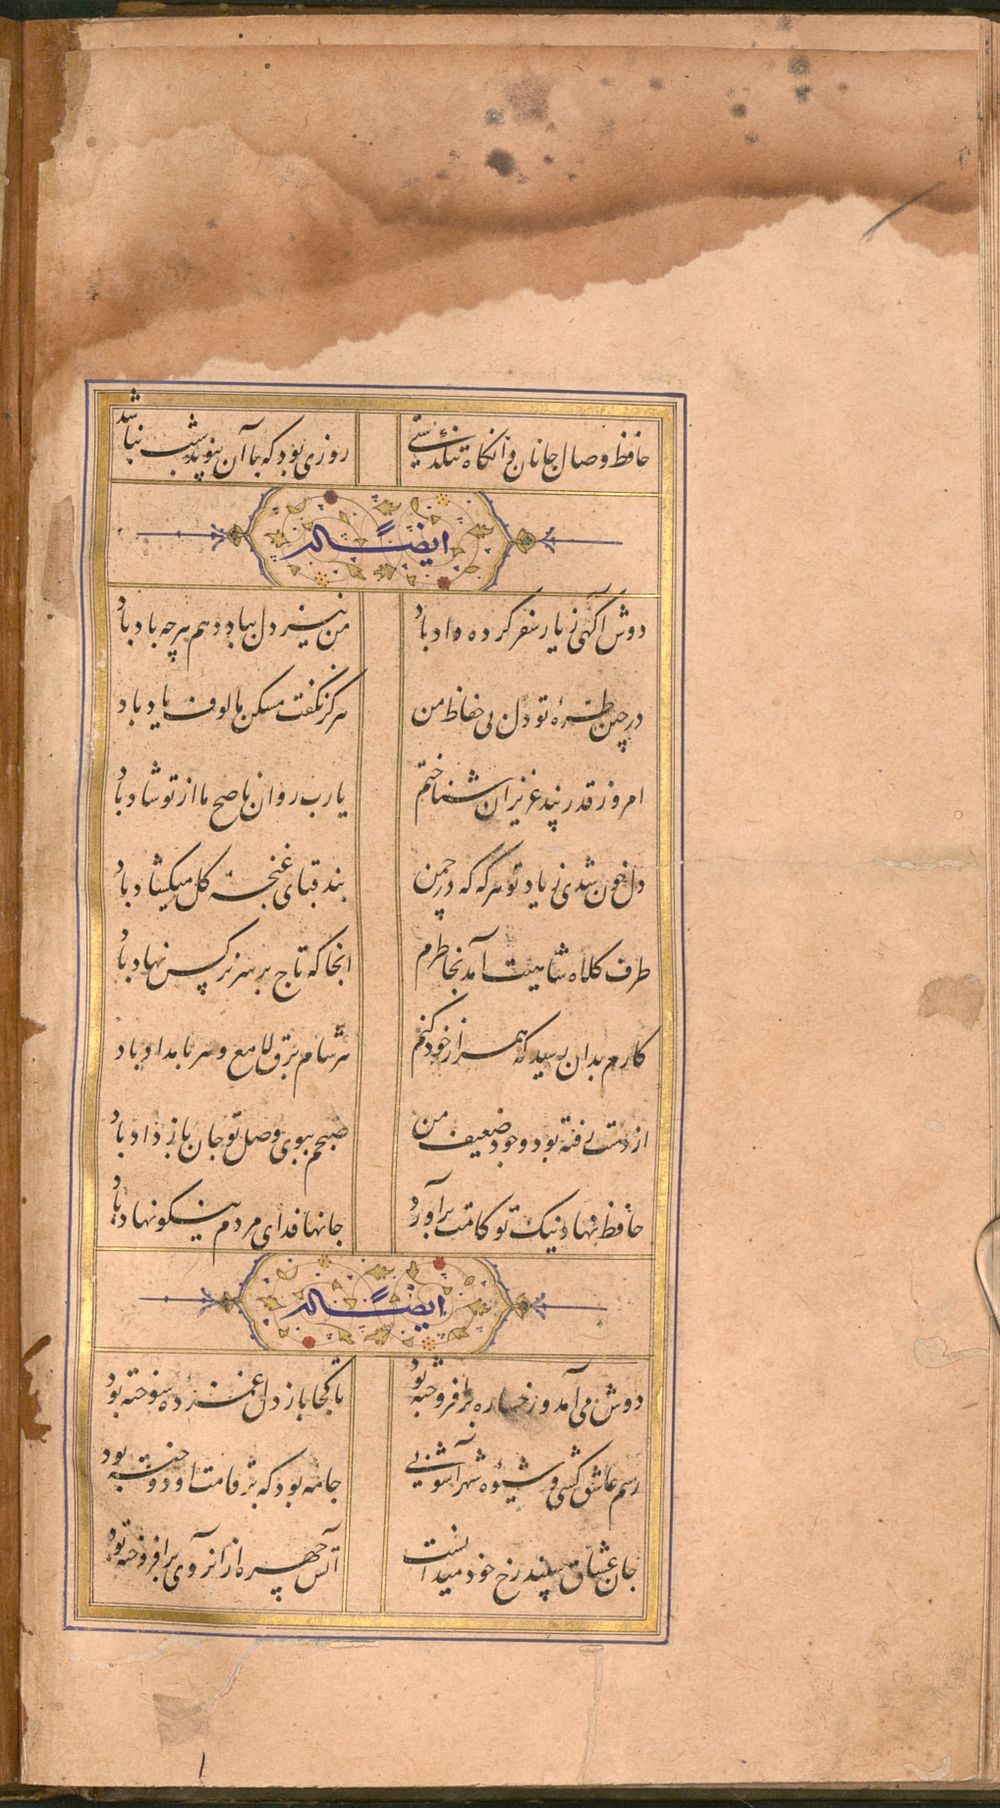 حافظ وصال جانان و آنگاه تنگدستی
روزی بود که با آن پیوند شب نباشد
ایضاً له
دوش آگهی ز یار سفر کرده داد باد
من نیز دل بباد دهم هر چه باد باد
در چین طره تو دل بی حفاظ من
هرگز نگفت مسکن مالوف یاد باد
امروز قدر پند عزیزان شناختم
یارب روان ناصح ما از تو شاد باد
دل خون شدی ز یاد تو هر گه که در چمن
بند قبای غنچه گل میگشاد باد
طرف کلاه شاهیت آمد بخاطرم
انجا که تاج بر سر نرگس نهاد باد
کارم بدان رسید که همراز خود کنم
هر شام برق لامع و هر بامداد باد
از دست رفته بود وجود ضعیف من
صبحم ببوی وصل تو جان باز داد باد
حافظ نهاد نیک تو کامت برآورد
جانها فدای مردم نیکو نهاد باد
ایضاً له
دوش می آمد و رخساره برافروخته بود
تا کجا باز دل غمزده سوخته بود
رسم عاشق کشی و شیوه شهر آشوبی
جامه بود که بر قامت او دوخته بود
جان عشاق سپند رخ خود میدانست
آتش چهره از انروی برافروخته بود